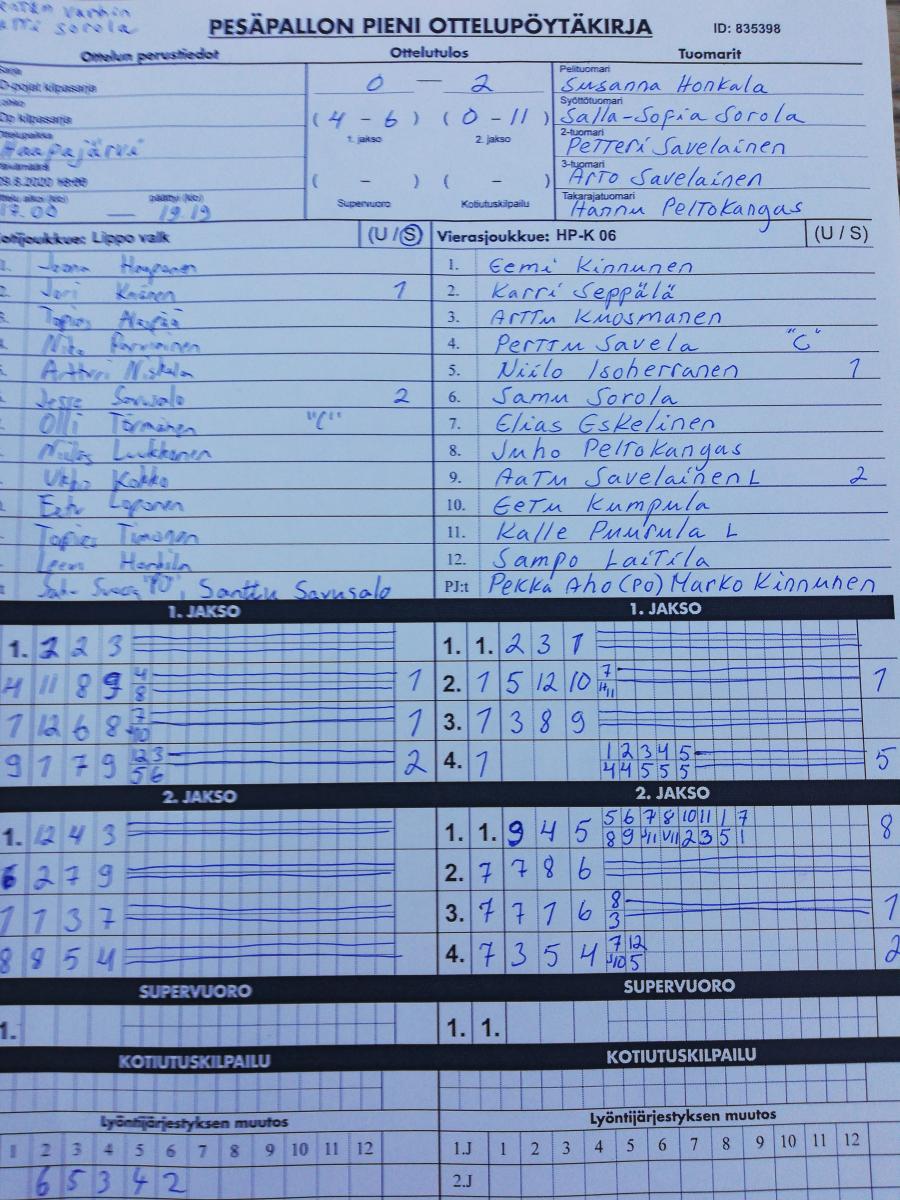 PESÄPALLON PIENI OTTELUPÖYTÄKIRJA ID: 835398
Ottelun perustiedot Ottelutulos Tuomarit
D-pojat kilpasarja
0 — 2
Pelituomari
Susanna Honkala
Dp kilpasarja
(4 - 6) (0 - 11)
1. jakso 2. jakso
Syöttötuomari
Salla-Sofia Sorola
Haapajärvi
2-tuomari
Petteri Savelainen
( - ) ( - )
Supervuoro Kotiutuskilpailu
3-tuomari
Arto Savelainen
17.00 — 19.19
Takarajatuomari
Hannu Peltokangas
Lippo valk (U / S) Vierasjoukkue: HP-K 06 (U / S)
1. Eemi Kinnunen
Jori 1 2. Karri Seppälä
3. Arttu Kuosmanen
4. Perttu Savela "C"
Artturi Niskala 5. Niilo Isoherranen 1
2 6. Samu Sorola
Olli Törmänen "C" 7. Elias Eskelinen
Luukkonen 8. Juho Peltokangas
Ukko Kokko 9. Aatu Savelainen L 2
Eetu Loponen 10. Eetu Kumpula
Timonen 11. Kalle Puurula L
12. Sampo Laitila
"PO", Santtu Savusalo PJ:t Pekka Aho (PO) Marko Kinnunen
1. JAKSO 1. JAKSO
1. 2 2 3 1. 1. 2 3 1
4 11 8 9 4 8 1 2. 1 5 12 10 7 11 1
1 12 6 8 7 10 1 3. 1 3 8 9
9 1 7 9 12 3 5 6 2 4. 1 1 2 3 4 5 4 4 5 5 5 5
2. JAKSO 2. JAKSO
1. 12 4 3 1. 1. 9 4 5 5 6 7 8 10 11 1 7 8 9 11 VII 2 3 5 1 8
6 2 7 9 2. 7 7 8 6
1 1 3 7 3. 7 7 1 6 8 3 1
8 8 5 4 4. 7 3 5 4 7 12 10 5 2
SUPERVUORO SUPERVUORO
1. 1. 1.
KOTIUTUSKILPAILU KOTIUTUSKILPAILU
Lyöntijärjestyksen muutos Lyöntijärjestyksen muutos
1 2 3 4 5 6 7 8 9 10 11 12 1.J 1 2 3 4 5 6 7 8 9 10 11 12
6 5 3 4 2 2.J